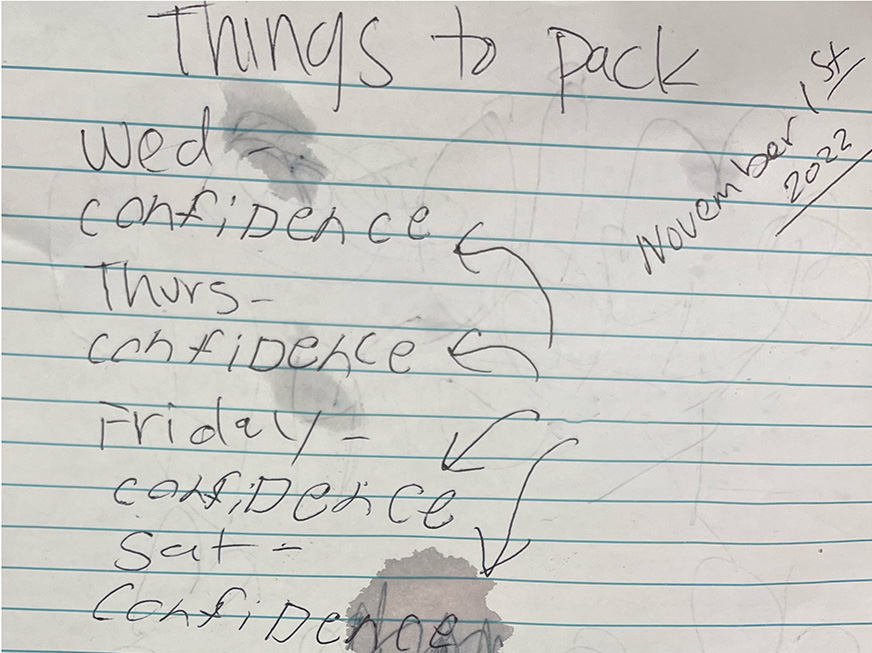 Things to pack
November 1st
2022
Wed -
confiDence
Thurs -
confiDence
Friday -
confiDence
Sat -
confiDence